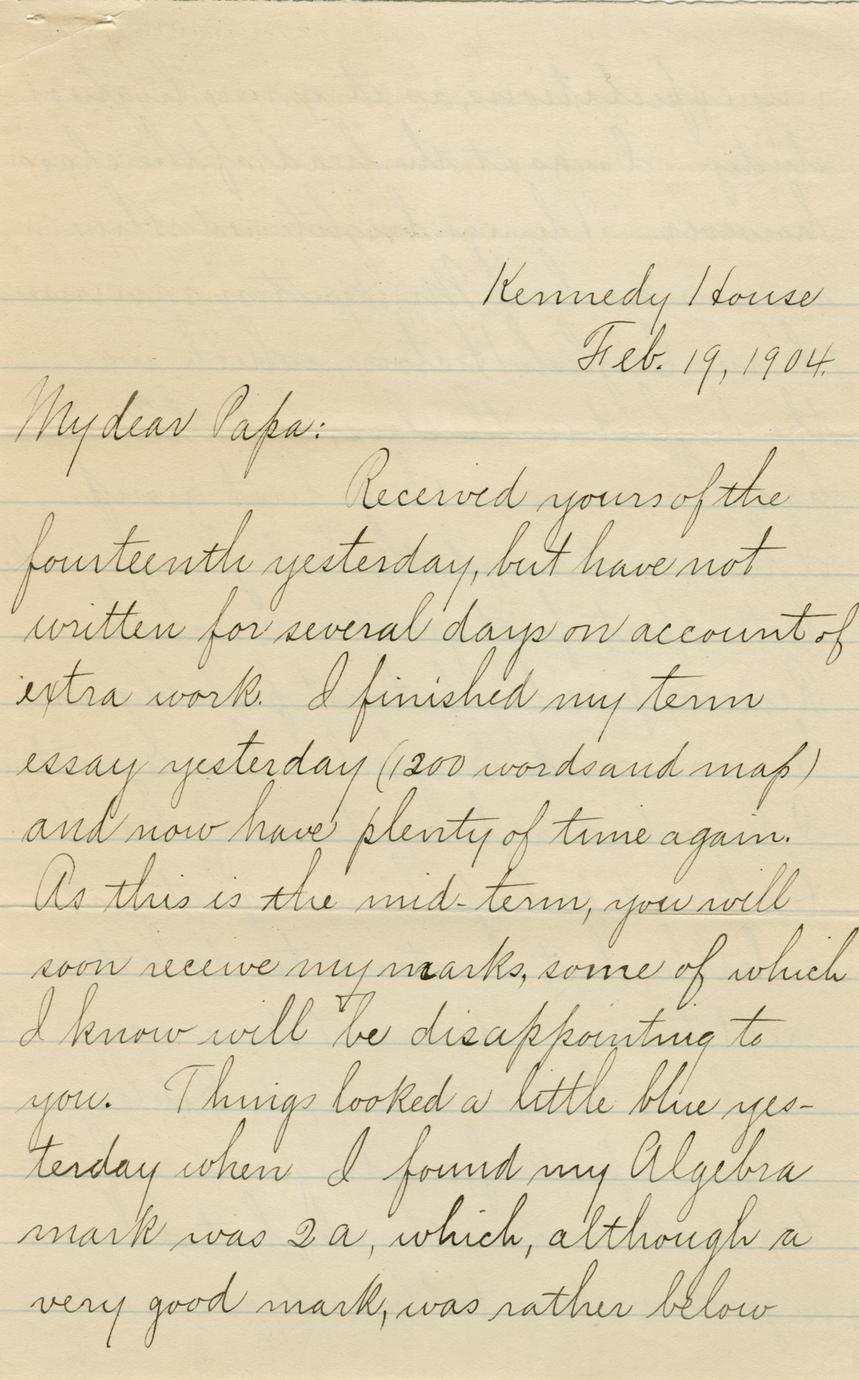 Kennedy House
Feb. 19, 1904.
My dear Papa:
Received yours of the
fourteenth yesterday, but have not
written for several days on account of
extra work. I finished my term
essay yesterday (1200 words and map)
and now have plenty of time again.
As this is the mid-term, you will
soon receive my marks, some of which
I know will be disappointing to
you. Things looked a little blue yes-
terday when I found my Algebra
mark was 2a, which, although a
very good mark, was rather below